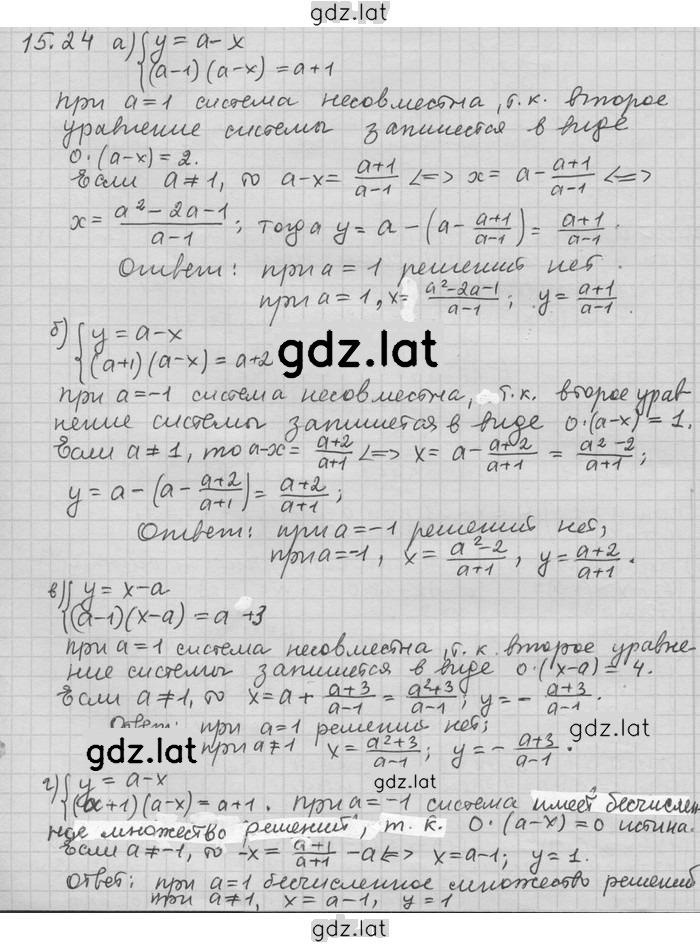 gdz.lat
15.24 а) { y = a-x
(a-1)(a-x) = a+1
при a=1 система несовместна, т.к. второе
уравнение системы запишется в виде
0·(a-x)=2.
Если a≠1, то a-x = (a+1)/(a-1) <=> x = a - (a+1)/(a-1) <=>
x = (a²-2a-1)/(a-1); тогда y = a-(a-(a+1)/(a-1)) = (a+1)/(a-1).
Ответ: при a=1 решений нет.
при a=1, x= (a²-2a-1)/(a-1); y= (a+1)/(a-1).
б) { y = a-x
(a+1)(a-x) = a+2
gdz.lat
при a=-1 система несовместна, т.к. второе урав-
нение системы запишется в виде 0·(a-x)=1.
Если a≠1, то a-x= (a+2)/(a+1) <=> x = a-(a+2)/(a+1) = (a²-2)/(a+1);
y = a-(a-(a+2)/(a+1)) = (a+2)/(a+1);
Ответ: при a=-1 решений нет;
при a=-1, x = (a²-2)/(a+1), y = (a+2)/(a+1).
в) { y = x-a
(a-1)(x-a) = a+3
при a=1 система несовместна, т.к. второе уравне-
ние системы запишется в виде 0·(x-a)=4.
Если a≠1, то x=a+(a+3)/(a-1) = (a²+3)/(a-1); y=-(a+3)/(a-1).
Ответ: при a=1 решений нет;
gdz.lat при a≠1 x= (a²+3)/(a-1); y=-(a+3)/(a-1).
gdz.lat
г) { y = a-x
(a+1)(a-x)=a+1. при a=-1 система имеет бесчислен-
ное множество решений, т.к. 0·(a-x)=0 истина.
Если a≠-1, то -x= (a+1)/(a+1) -a <=> x=a-1; y=1.
Ответ: при a=1 бесчисленное множество решений
при a≠1, x=a-1, y=1
gdz.lat